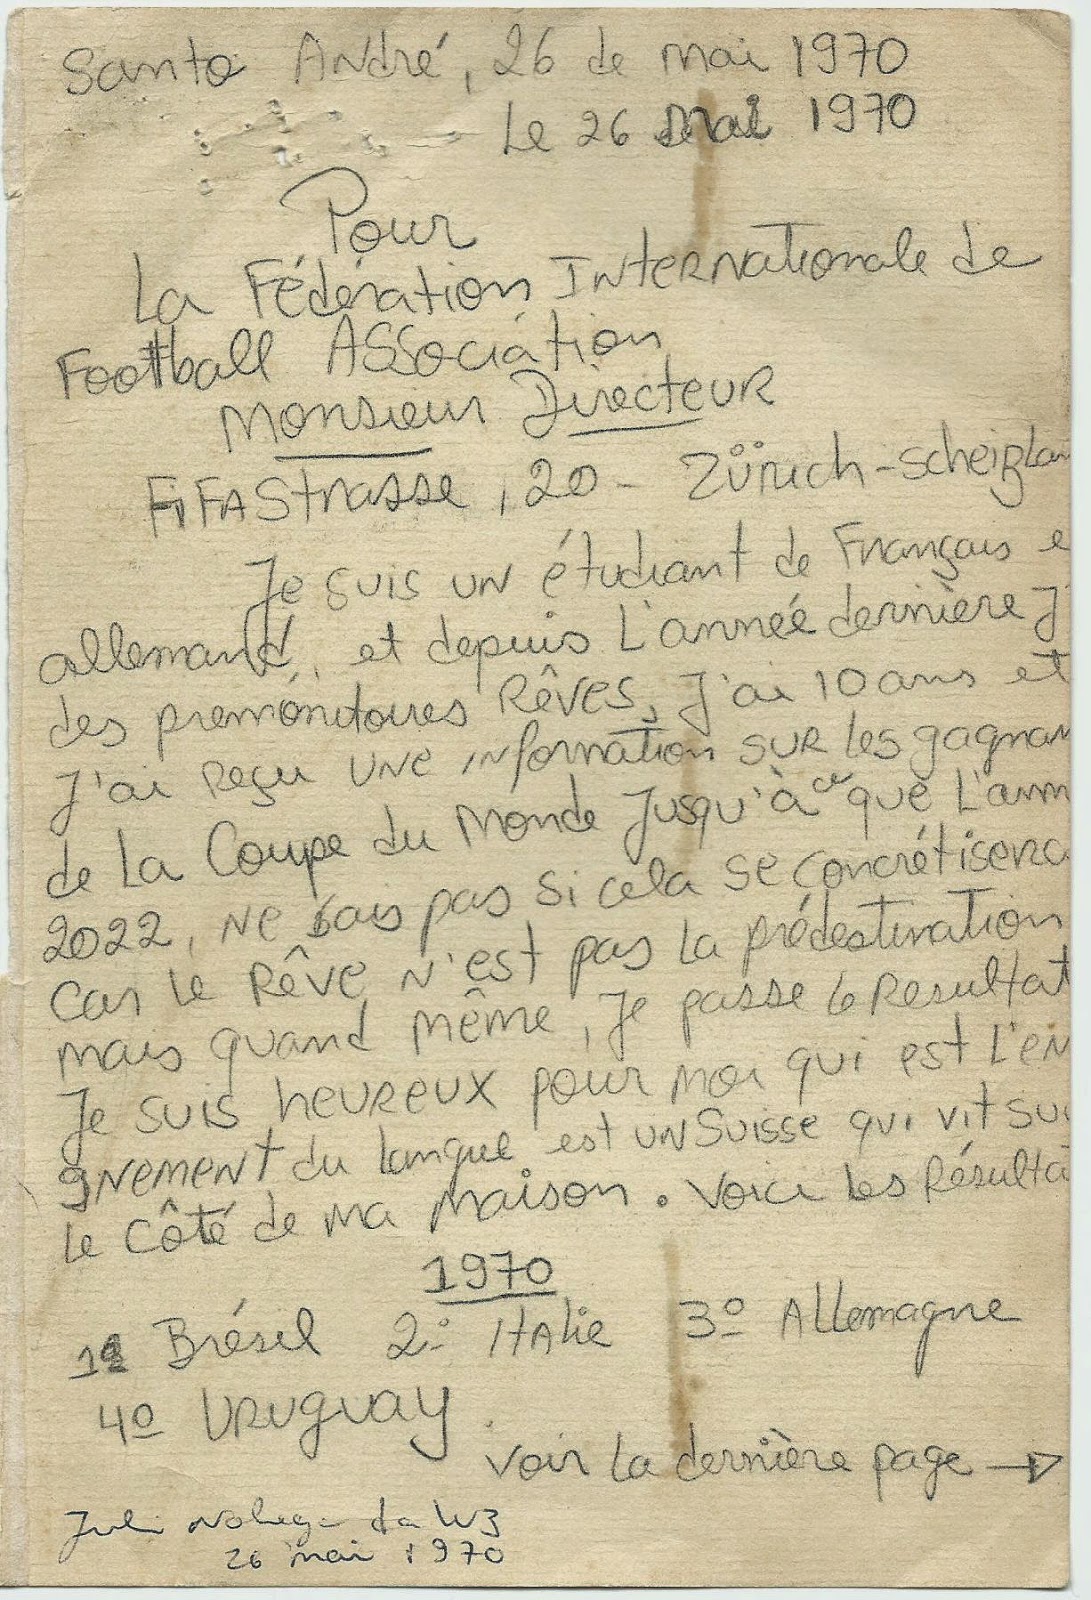 Santo André, 26 de mai 1970
Le 26 mai 1970
Pour
La Fédération Internationale de
Football Association
Monsieur Directeur
FiFA Strasse, 20 - Zürich - scheizlan
Je suis un étudiant de Français e
allemand, et depuis l'année dernière J'
des premónitoires Rêves, J'ai 10 ans et
J'ai reçu une information sur les gagnan
de la Coupe du Monde Jusqu'à ce que L'ann
2022, ne sais pas si cela se concrétisera
Car le Rêve n'est pas la prédestination
mais quand même, Je passe le Resultat
Je suis heureux pour moi qui est L'en
gnement du langue est un Suisse qui vit su
le Côté de ma maison. Voici les Résulta
1970
Brésil 2º Italie 3º Allemagne
4º Uruguay
voir la dernière page →
da Luz
26 mai 1970